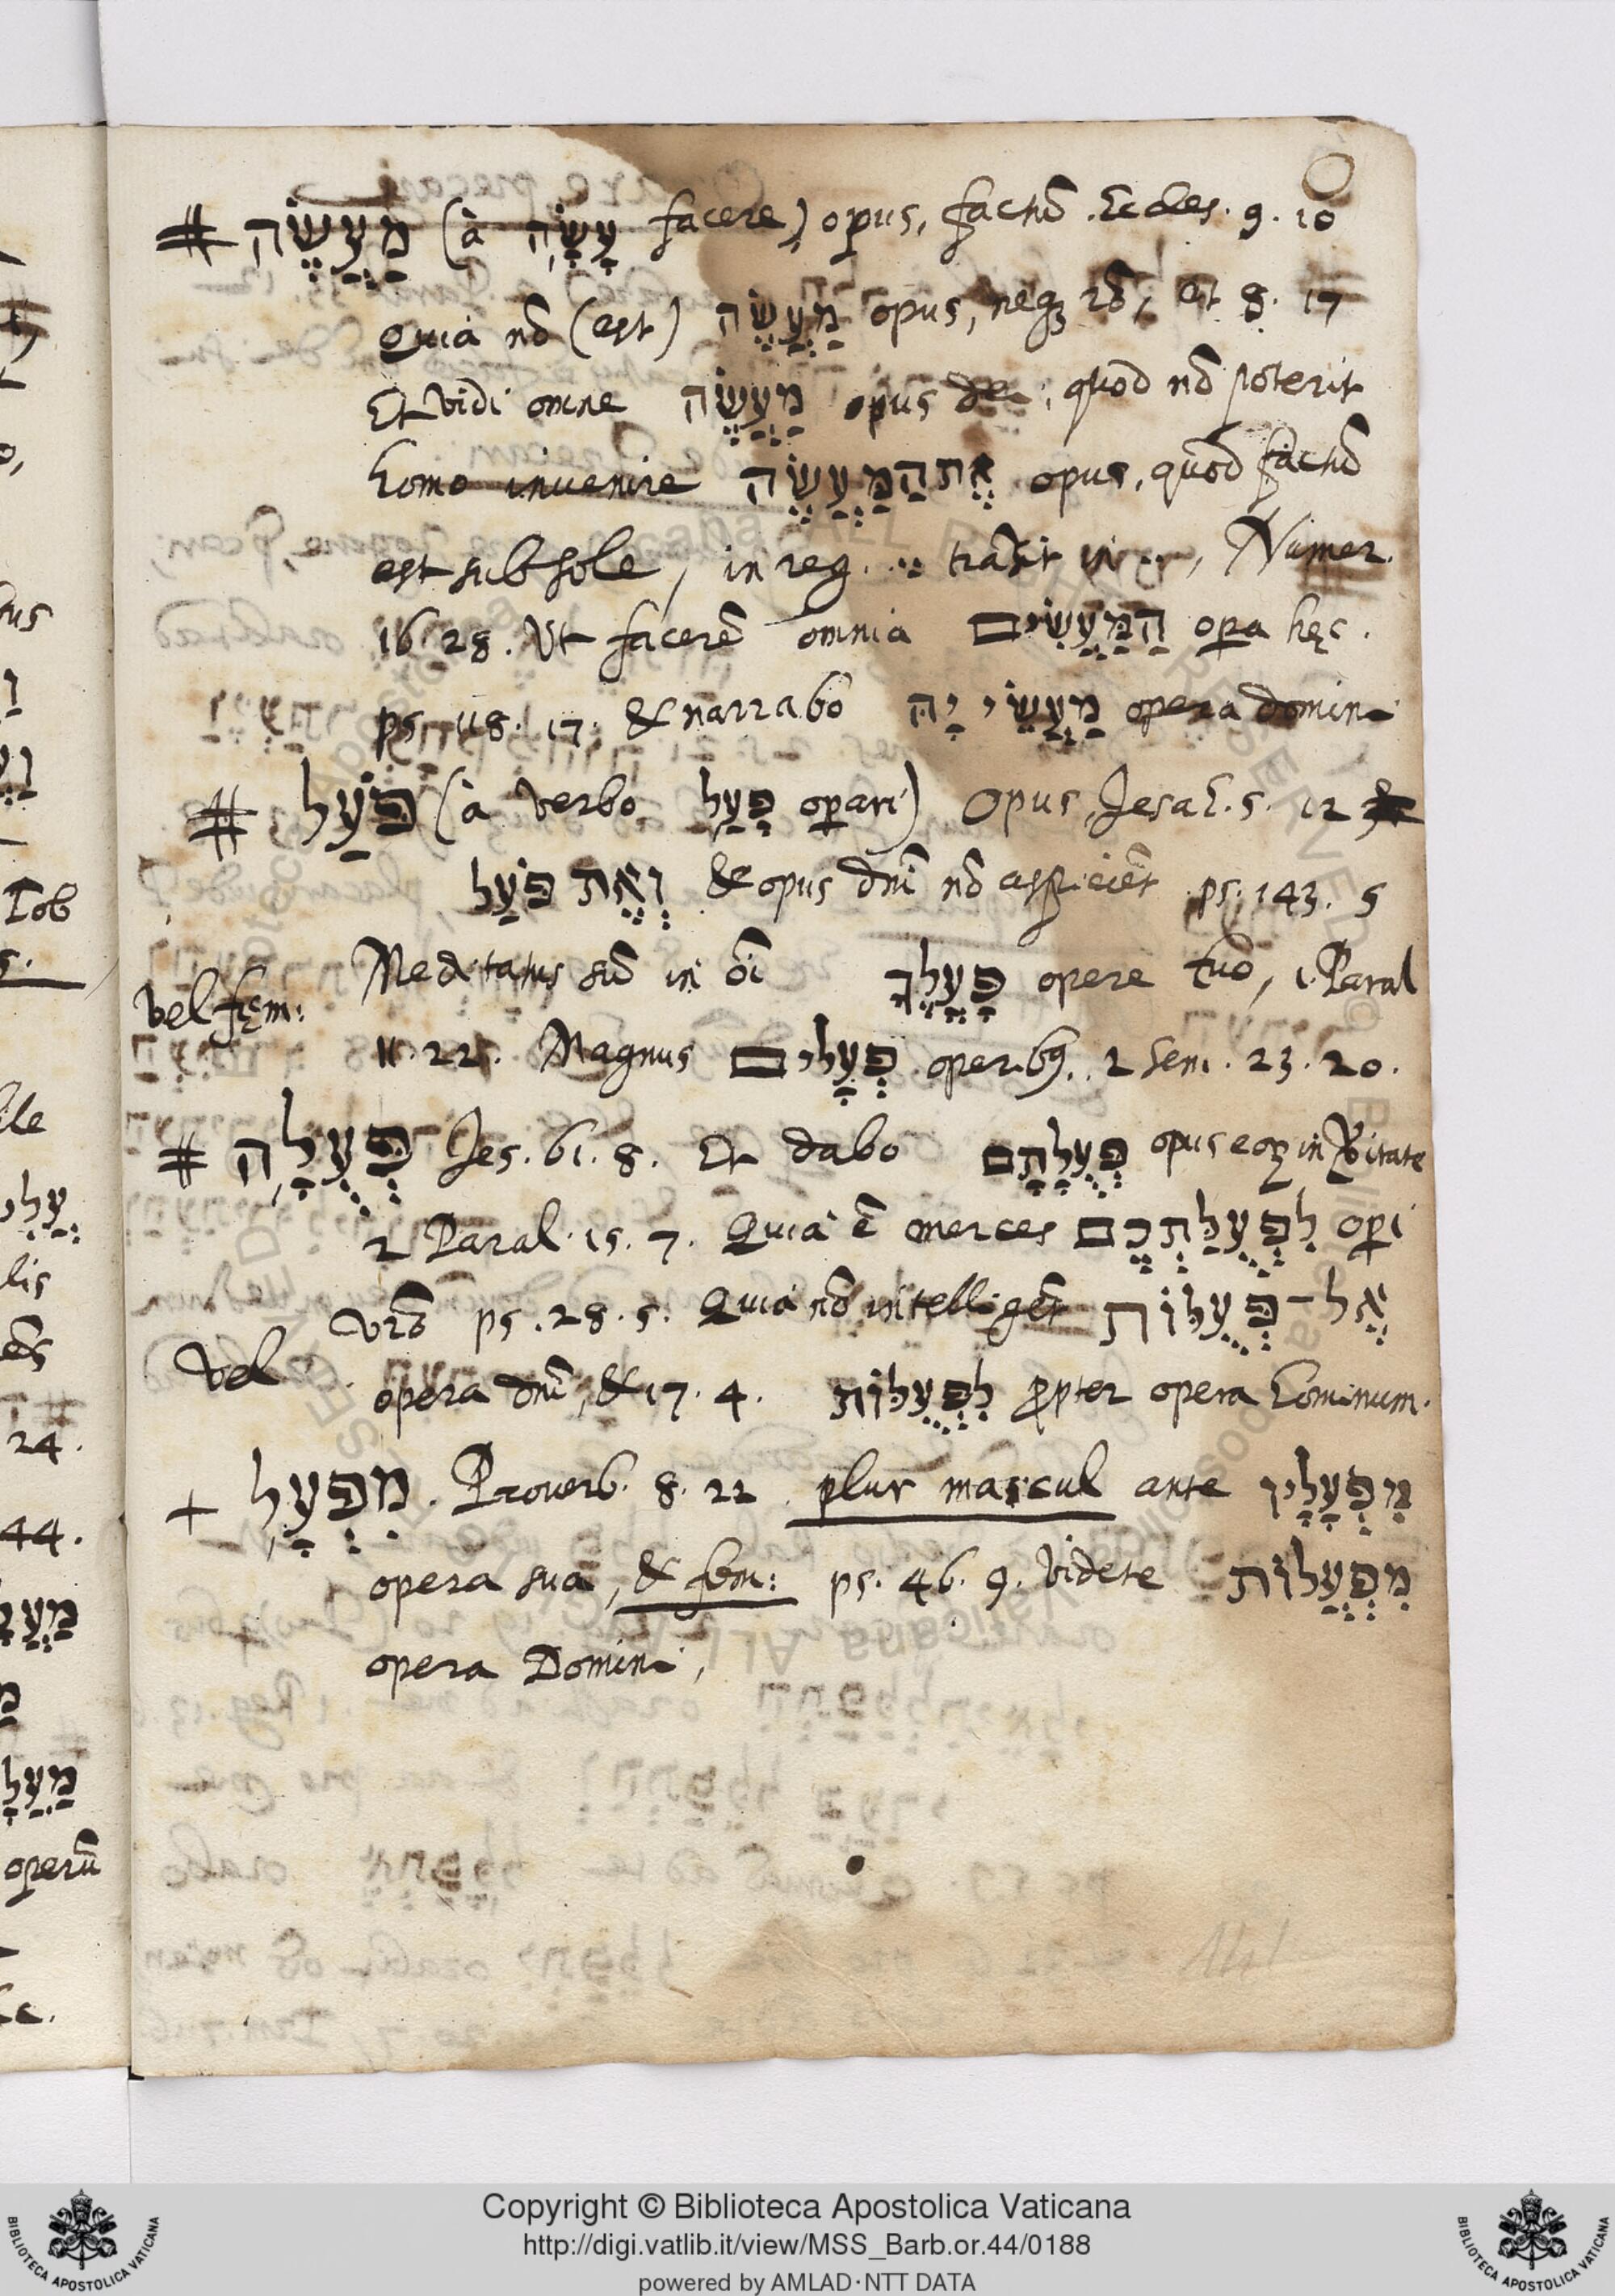 # מַעֲשֶׂה (à עָשָׂה facere) opus, factū. Eccles. 9. 10
Quia nō (est) מַעֲשֶׂה opus, neqꝫ rō, et 8. 17
Et vidi omne מַעֲשֶׂה opus dei, quod nō poterit
homo invenire אֶת הַמַּעֲשֶׂה opus, quod factū
est sub sole, in reg. transit in, Numer.
16 28. Ut facerē omnia הַמַּעֲשִׂים opa hęc.
ps 118. 17. & narrabo מַעֲשֵׂי יָהּ opera domini
# פֹּעַל (à verbo פָּעַל opari) Opus, Jesai. 5. 12
וְאֵת פֹּעַל & opus dnī nō aspiciēt ps. 143. 5
Meditatus sū in oī פָּעֳלֶךָ opere tuo, 1. Paral
vel fęm:
11. 22. Magnus פְּעָלִים operibꝰ. 2 Sem. 23. 20.
# פְּעֻלָּה Jes. 61. 8. Et dabo פְּעֻלָּתָם opus eoꝝ in Vitate
2 Paral. 15. 7. Quia ē merces לִפְעֻלַּתְכֶם opi
vrō ps. 28. 5. Quia nō intelligēt אֶל־פְּעֻלּוֹת
Vel
opera dnī, & 17. 4. לִפְעֻלּוֹת ꝓpter opera hominum.
+ מִפְעָל. Proverb. 8. 22 plur mascul ante מִפְעָלָיו
opera sua, & fem: ps. 46. 9. Videte מִפְעֲלוֹת
opera Domini,
141
Tob
5.
lis
24.
44.
operū
Copyright © Biblioteca Apostolica Vaticana
http://digi.vatlib.it/view/MSS_Barb.or.44/0188
powered by AMLAD·NTT DATA
BIBLIOTECA APOSTOLICA VATICANA
BIBLIOTECA APOSTOLICA VATICANA